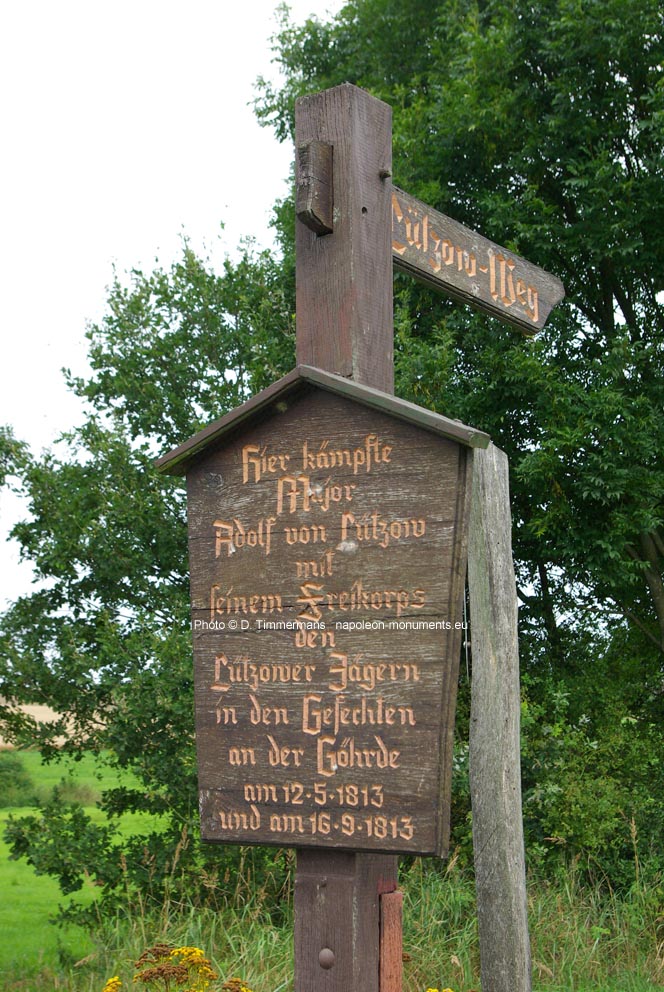 Lützow-Weg
Hier kämpfte
Major
Adolf von Lützow
mit
seinem Freikorps
Photo © D. Timmermans napoleon-monuments.eu
den
Lützower Jägern
in den Gefechten
an der Göhrde
am 12·5·1813
und am 16·9·1813